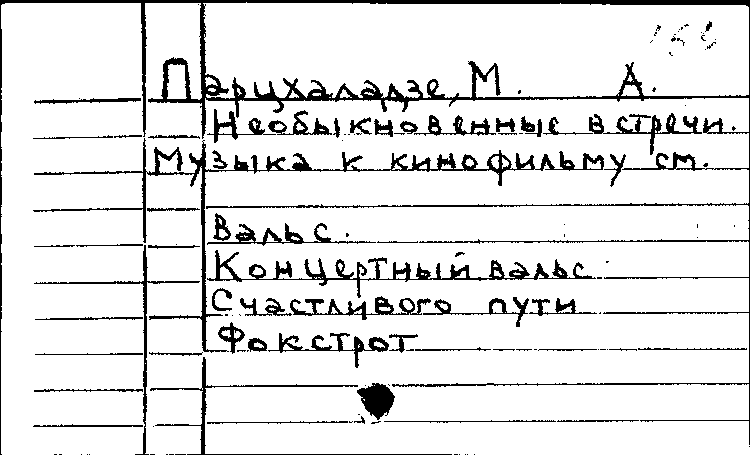 Парцхаладзе, М. А.
Необыкновенные встречи.
Музыка к кинофильму см.
Вальс.
Концертный вальс
Счастливого пути
Фокстрот